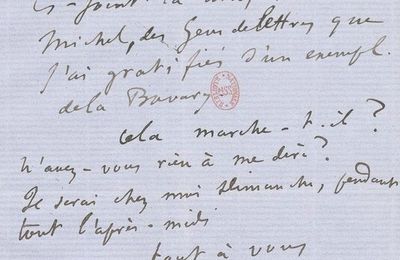 ci-joint la liste
Michel, des Gens de lettres que
j'ai gratifiés d'un exempl.
de la Bovary
Cela marche-t-il ?
N'avez-vous rien à me dire ?
Je serai chez moi dimanche, pendant
tout l'après-midi
tout à vous